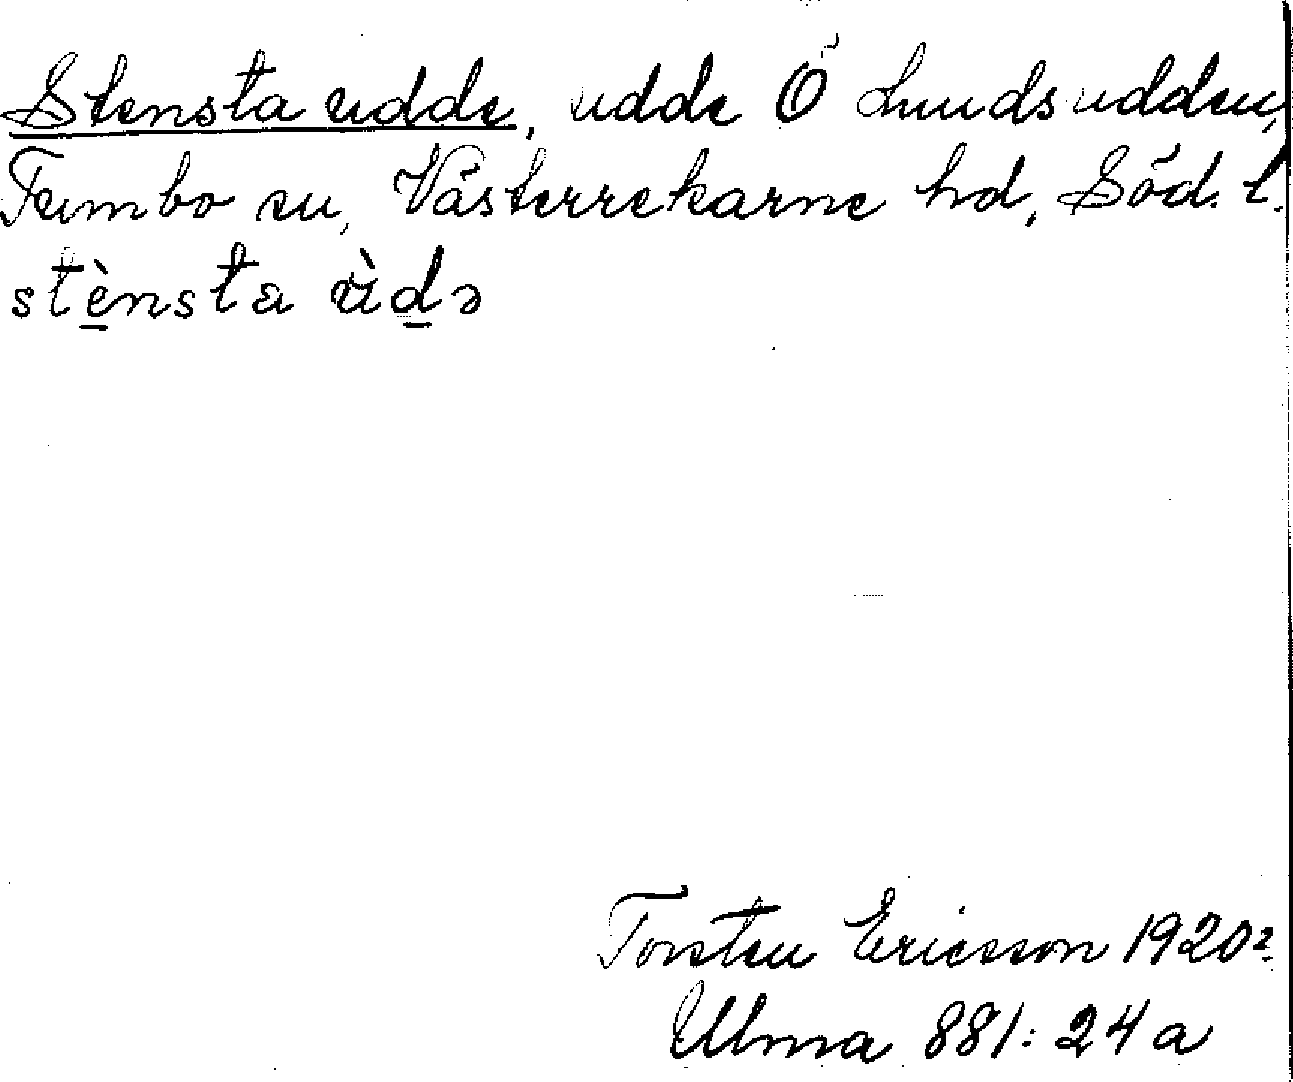 Stensta udde, udde Ö Lundsudden,
Tumbo sn, Västerrekarne hd, Söd. l.
stènsta ùdə
Torsten Ericsson 1920?
Ulma 881:24 a